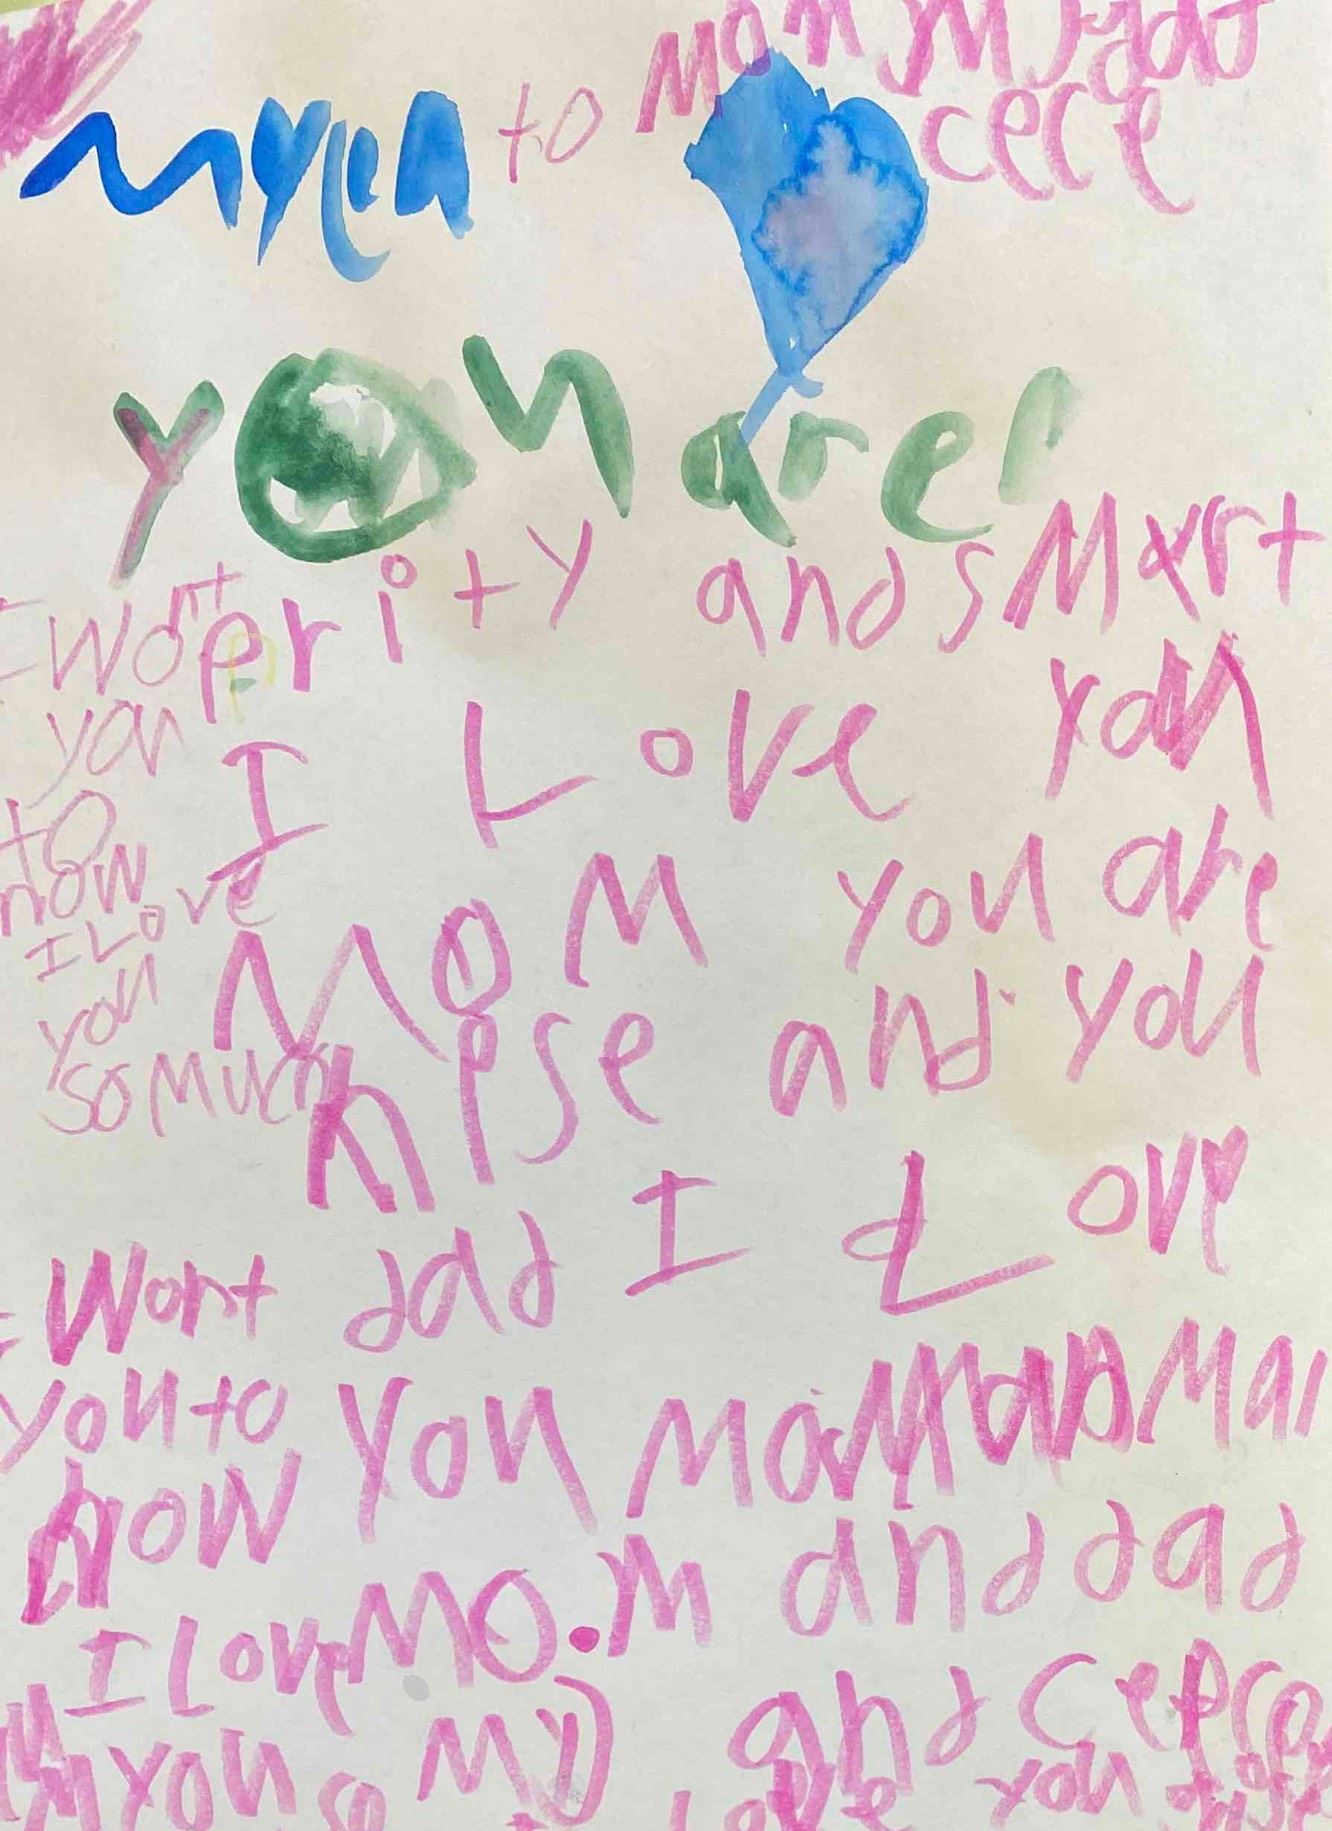 Myla to Mom My dad
cece
you are
prity and sMart
I Love you
MoM you are
nise and you
dad I Love
you
MO.M and dad
and cece
My
Love you
I wont
you
to
now
I Love
you
so Much
I Wont
you to
now
I Love
you so